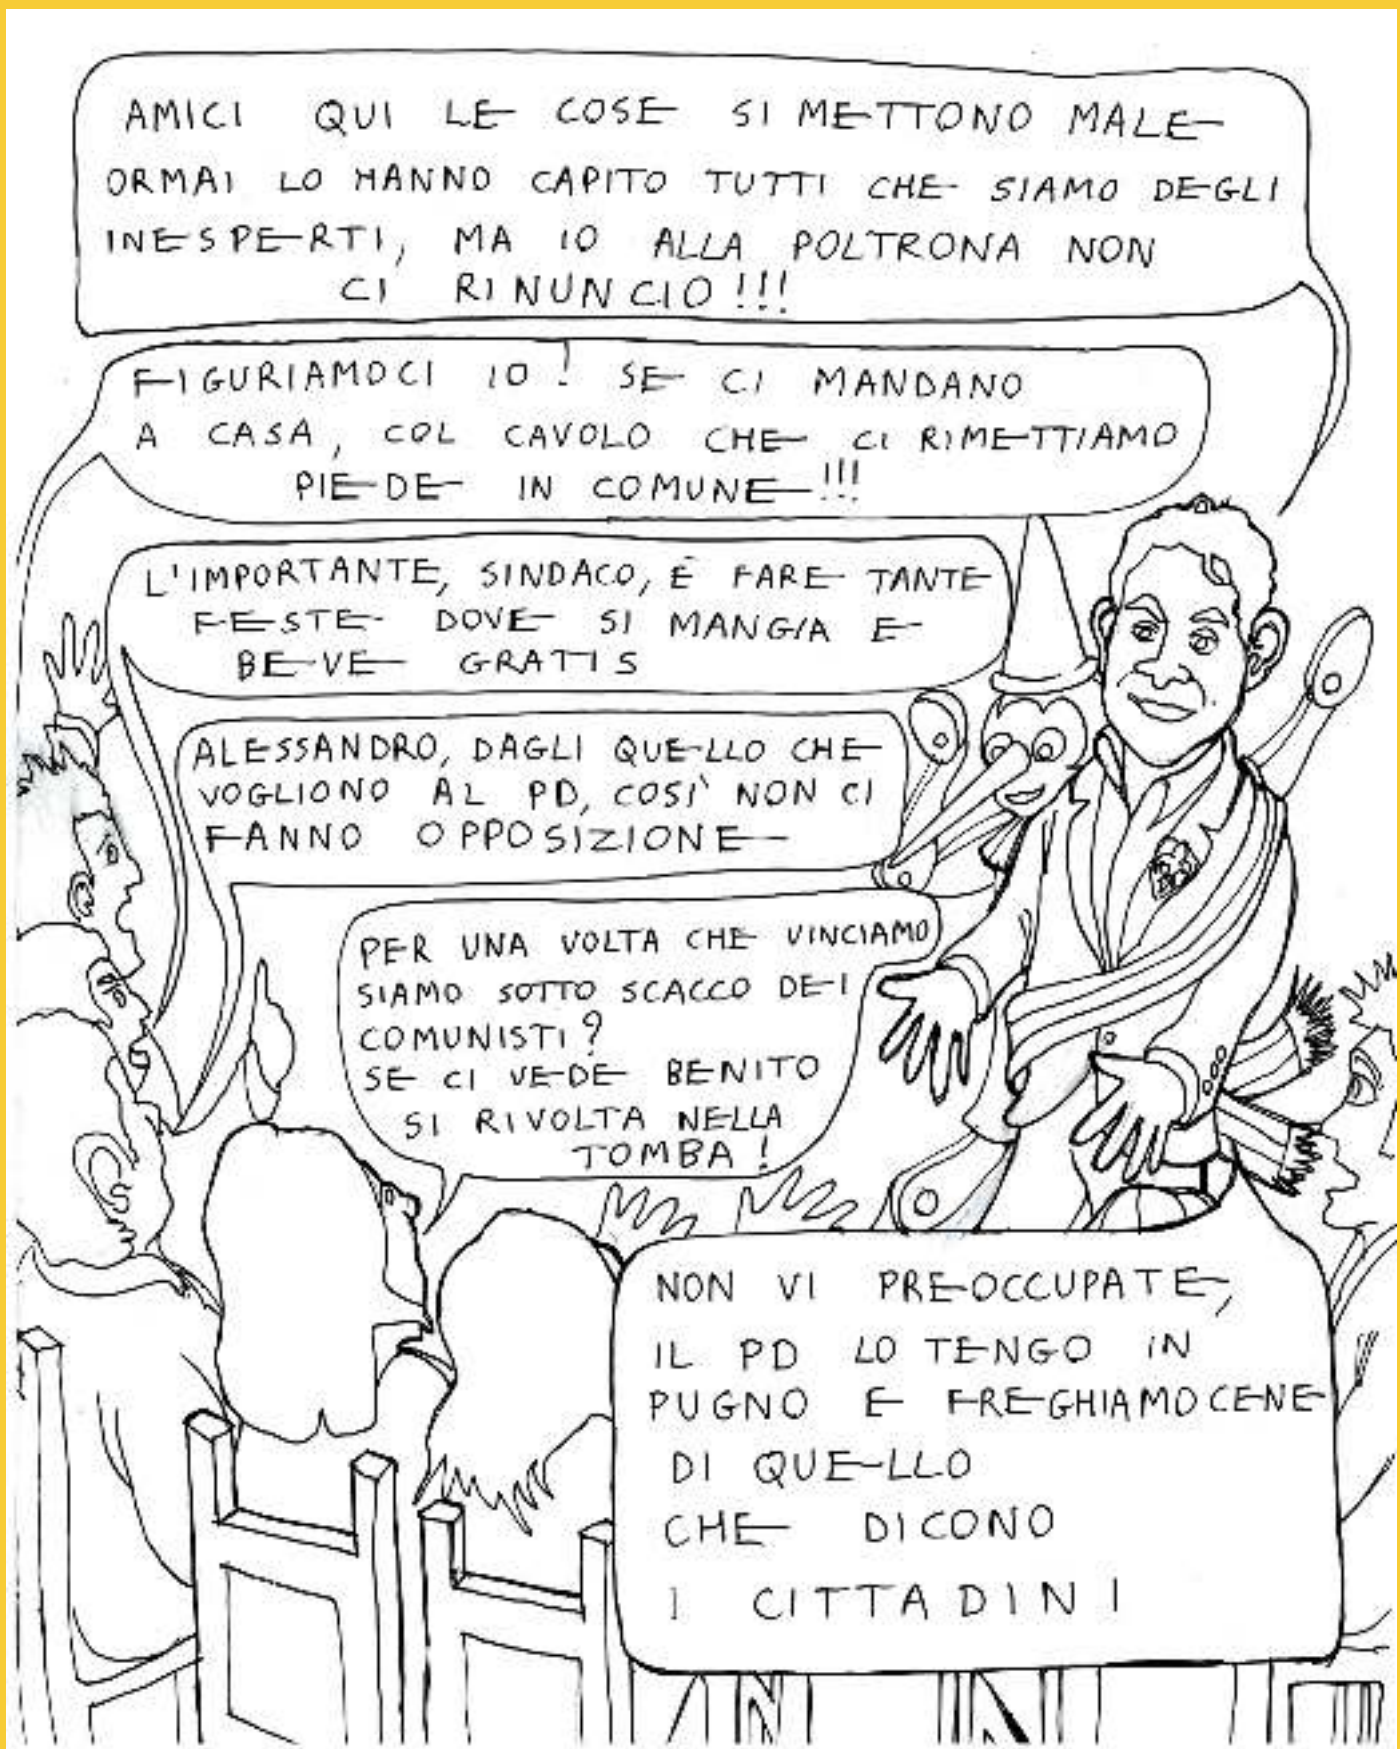 AMICI QUI LE COSE SI METTONO MALE
ORMAI LO HANNO CAPITO TUTTI CHE SIAMO DEGLI
INESPERTI, MA IO ALLA POLTRONA NON
CI RINUNCIO!!!
FIGURIAMOCI IO! SE CI MANDANO
A CASA, COL CAVOLO CHE CI RIMETTIAMO
PIEDE IN COMUNE!!!
L'IMPORTANTE, SINDACO, È FARE TANTE
FESTE DOVE SI MANGIA E
BEVE GRATIS
ALESSANDRO, DAGLI QUELLO CHE
VOGLIONO AL PD, COSÌ NON CI
FANNO OPPOSIZIONE
PER UNA VOLTA CHE VINCIAMO
SIAMO SOTTO SCACCO DEI
COMUNISTI?
SE CI VEDE BENITO
SI RIVOLTA NELLA
TOMBA!
NON VI PREOCCUPATE,
IL PD LO TENGO IN
PUGNO E FREGHIAMOCENE
DI QUELLO
CHE DICONO
I CITTADINI